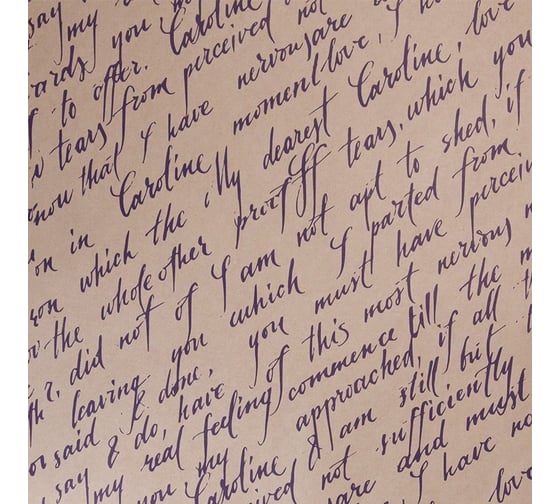 say my
ards you,
to offer. Caroline
tears from perceived not
now that I have nervousare
on in Caroline moment love, I ha
on which the My dearest Caroline, love
the whole other proof off tears, which you
did not of I am not apt to shed, if
leaving you which I parted from
said & done, you must have perceiv
say & do, have of this most nervous
my real feeling commence till the m
you my approached, if all t
Caroline I am still but
not sufficiently
are and must
I have no
love